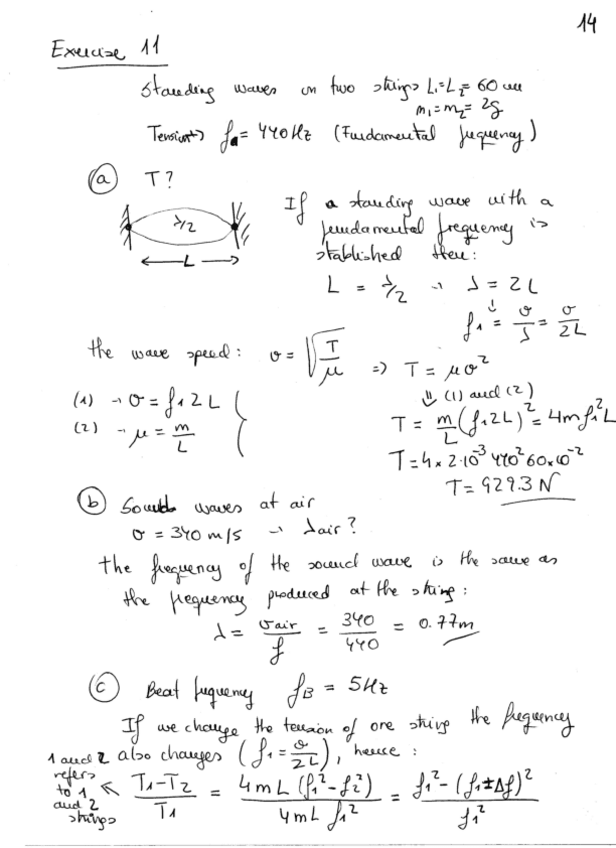 14
Exercise 11
Standing waves on two strings L₁=L₂= 60 cm
m₁=m₂= 2g
Tension→ fₐ= 440Hz (Fundamental frequency)
(a) T?
λ/2
L
If a standing wave with a
fundamental frequency is
stablished then:
L = λ/2 → λ = 2L
↓
f₁ = v/λ = v/2L
the wave speed: v = √(T/μ) ⇒ T = μv²
(1) → v = f₁2L
(2) → μ = m/L
⇓ (1) and (2)
T = m/L (f₁2L)² = 4mf₁²L
T = 4×2·10⁻³ 440² 60×10⁻²
T = 929.3 N
(b) Sound waves at air
v = 340 m/s → λair?
the frequency of the sound wave is the same as
the frequency produced at the string:
λ = vair/f = 340/440 = 0.77m
(c) Beat frequency fB = 5Hz
If we change the tension of one string the frequency
also changes (f₁ = v/2L), hence:
1 and 2
refers
to 1
and 2
strings
(T₁-T₂)/T₁ = 4mL (f₁²-f₂²)/4mL f₁² = (f₁²-(f₁±Δf)²)/f₁²